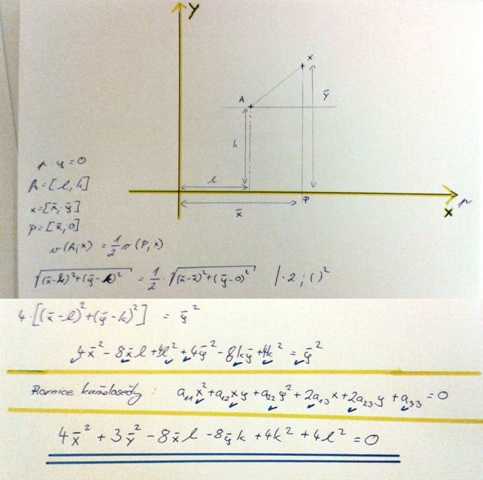 y
A
x
ȳ
k
l
x̄
P
x
p
p: y = 0
A = [l, k]
x = [x̄, ȳ]
P = [x̄, 0]
v(A, x) = 1/2 v(P, x)
√((x̄-l)²+(ȳ-k)²) = 1/2 · √((x̄-x̄)²+(ȳ-0)²) /·2 ; ( )²
4·[(x̄-l)²+(ȳ-k)²] = ȳ²
4x̄² - 8x̄l + 4l² + 4ȳ² - 8kȳ + 4k² = ȳ²
Rovnice kuželosečky: a₁₁x² + a₁₂xy + a₂₂y² + 2a₁₃x + 2a₂₃y + a₃₃ = 0
4x̄² + 3ȳ² - 8x̄l - 8ȳk + 4k² + 4l² = 0